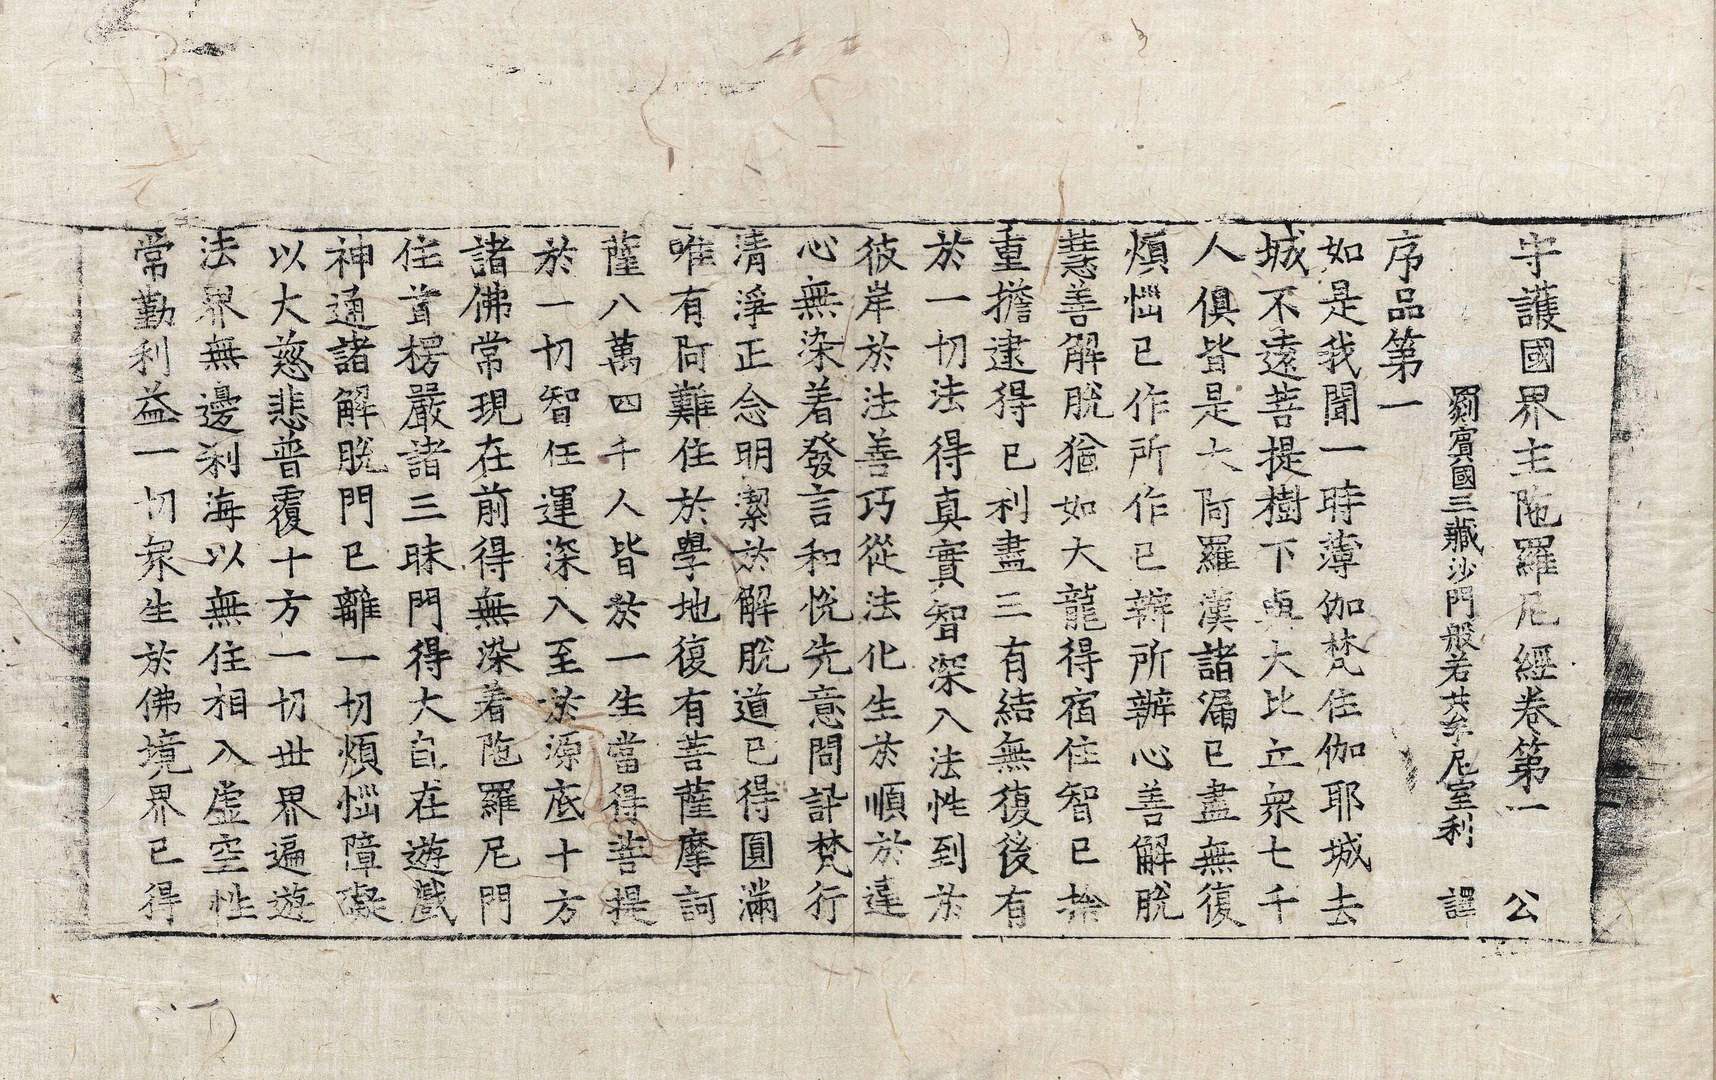 守護國界主陁羅尼經卷第一　公
罽賓國三藏沙門般若共牟尼室利　譯
序品第一
如是我聞一時薄伽梵住伽耶城去
城不遠菩提樹下與大比丘衆七千
人俱皆是大阿羅漢諸漏已盡無復
煩惱已作所作已辦所辦心善解脫
慧善解脫猶如大龍得宿住智已捨
重擔逮得已利盡三有結無復後有
於一切法得真實智深入法性到於
彼岸於法善巧從法化生於順於違
心無染着發言和悅先意問訊梵行
清淨正念明潔於解脫道已得圓滿
唯有阿難住於學地復有菩薩摩訶
薩八萬四千人皆於一生當得菩提
於一切智任運深入至於源底十方
諸佛常現在前得無染着陁羅尼門
住首楞嚴諸三昧門得大自在遊戲
神通諸解脫門已離一切煩惱障礙
以大慈悲普覆十方一切世界遍遊
法界無邊剎海以無住相入虛空性
常勤利益一切衆生於佛境界已得